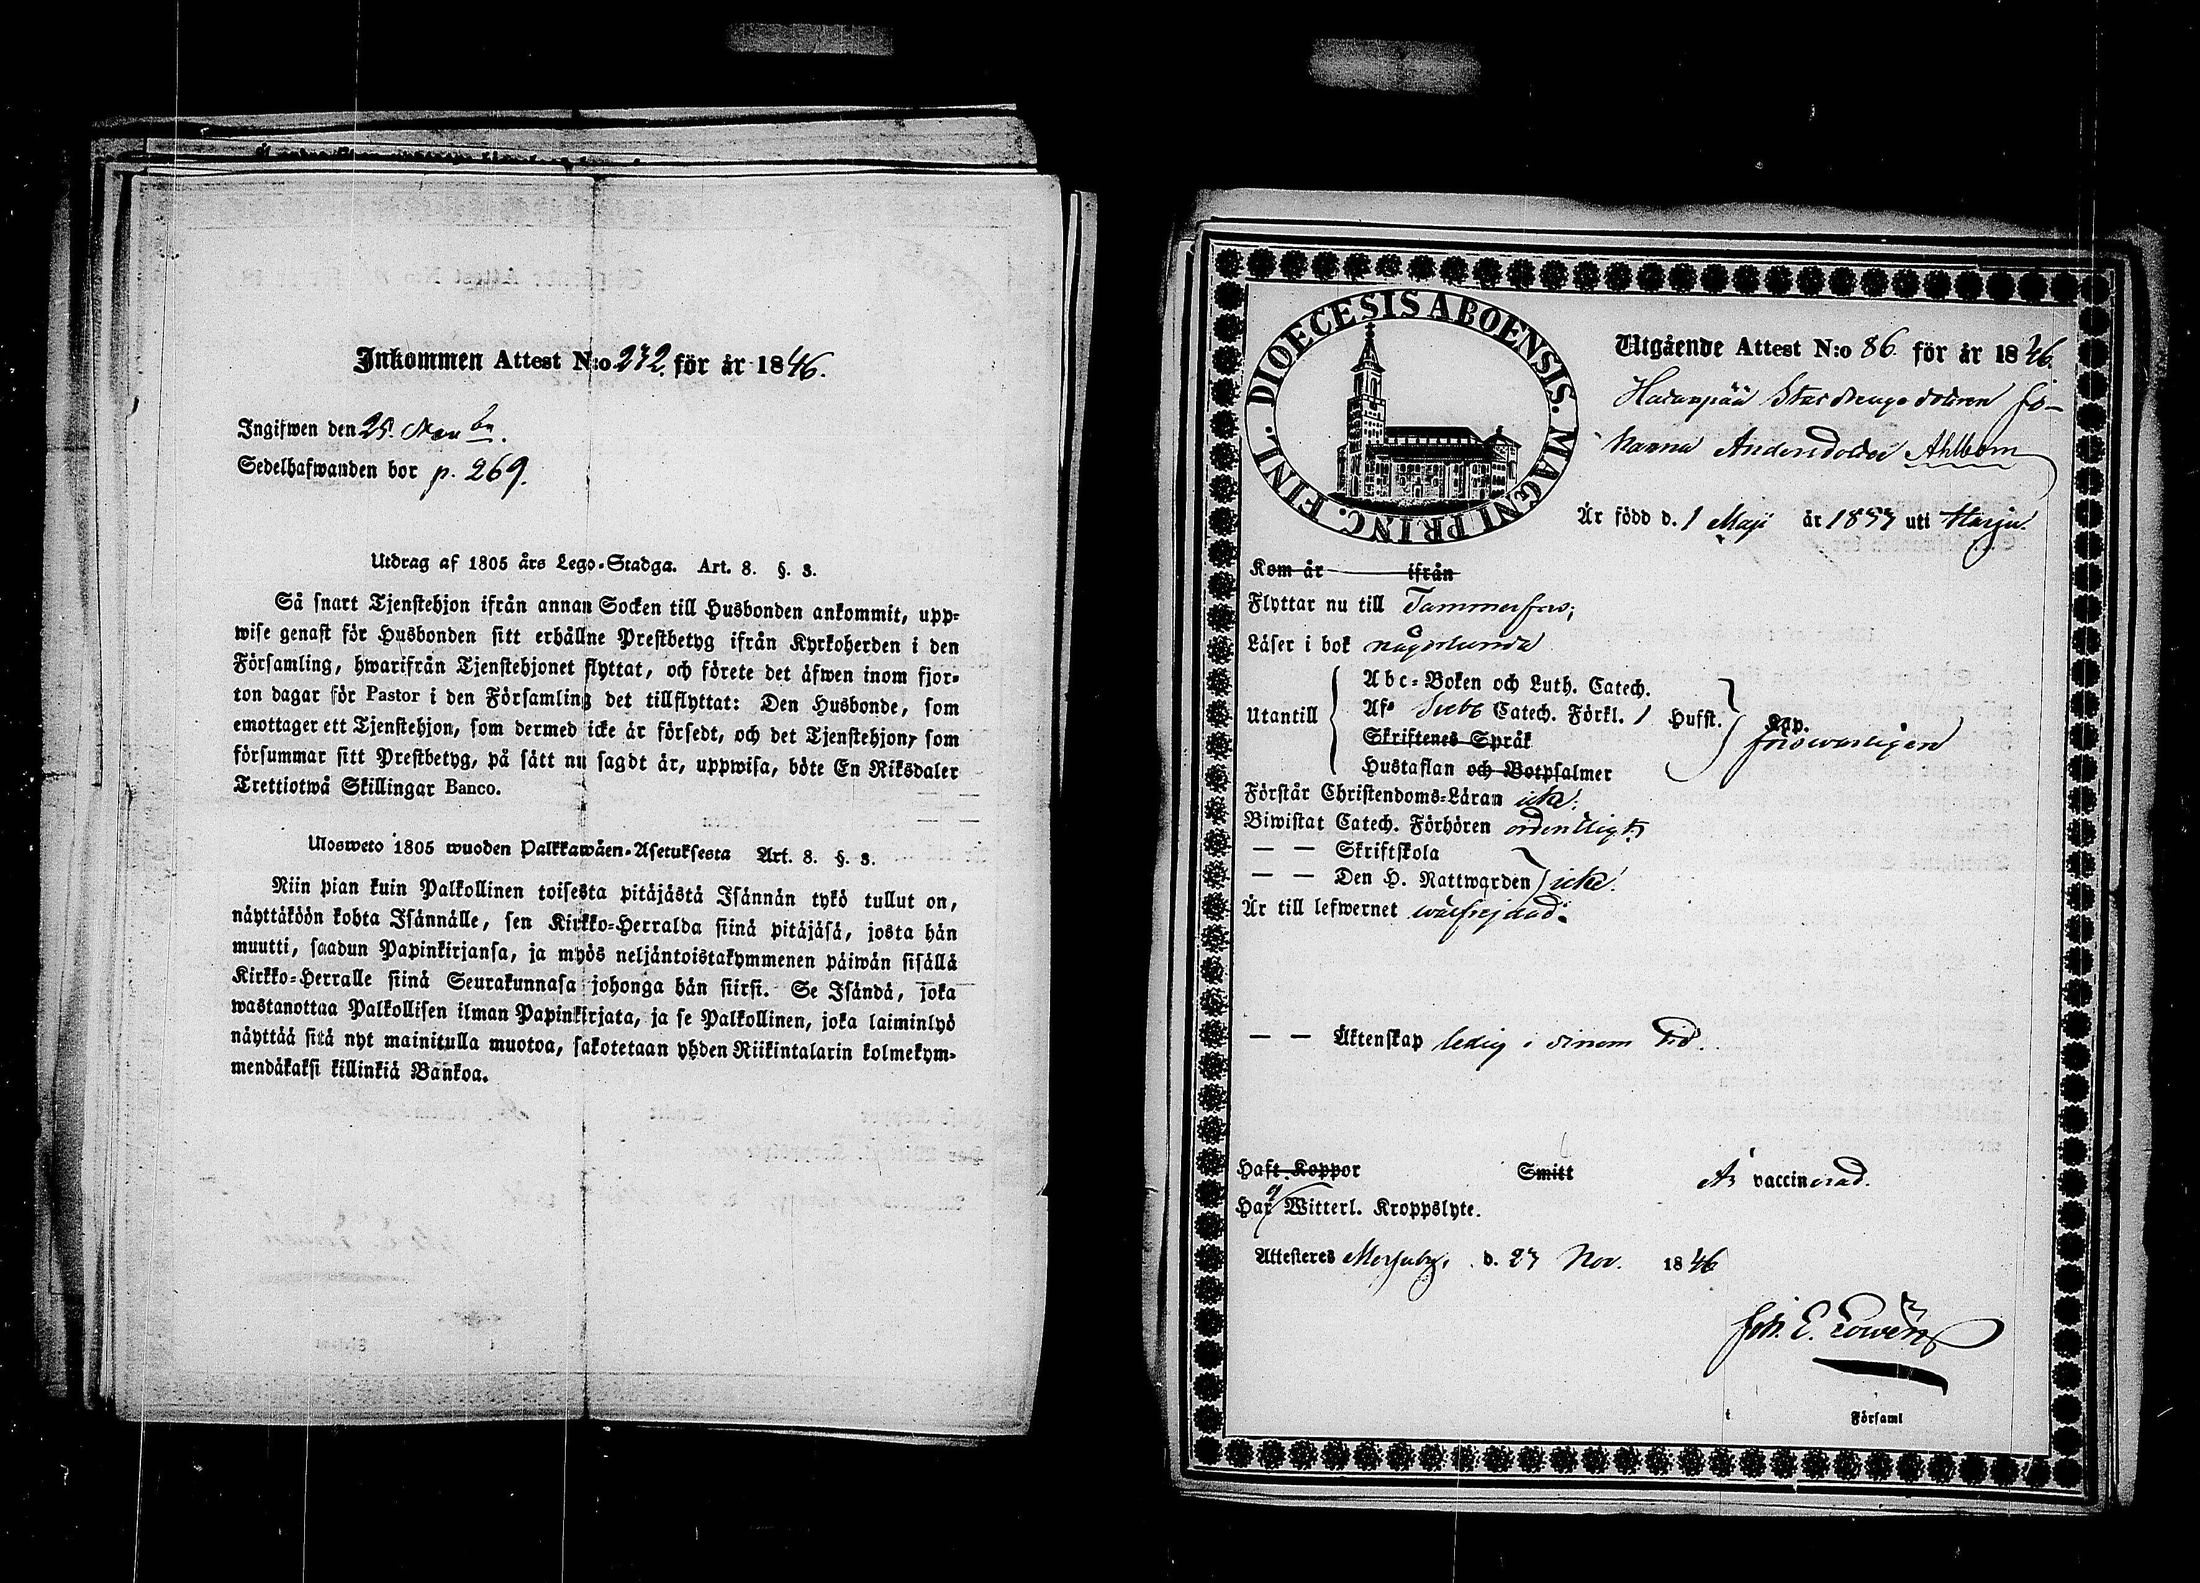 Inkommen Attest N:o 272. för år 1846.
Ingifwen den 25.
Sedelhafwanden bor p. 269.
Utdrag af 1805 års Lego-Stadga. Art. 8. §. 3.
Så snart Tjenstehjon ifrån annan Socken till Husbonden ankommit, upp-
wise genast för Husbonden sitt erhållne Prestbetyg ifrån Kyrkoherden i den
Församling, hwarifrån Tjenstehjonet flyttat, och förete det äfwen inom fjor-
ton dagar för Pastor i den Församling det tillflyttat: Den Husbonde, som
emottager ett Tjenstehjon, som dermed icke är försedt, och det Tjenstehjon, som
försummar sitt Prestbetyg, på sätt nu sagdt är, uppwisa, böte En Riksdaler
Trettiotwå Skillingar Banco.
Ulosweto 1805 wuoden Palkkawäen-Asetuksesta Art. 8. §. 3.
Niin pian kuin Palkollinen toisesta pitäjästä Isännän tykö tullut on,
näyttäköön kohta Isännälle, sen Kirkko-Herralda siinä pitäjäsä, josta hän
muutti, saadun Papinkirjansa, ja myös neljäntoistakymmenen päiwän sisällä
Kirkko-Herralle siinä Seurakunnasa johonga hän siirsi. Se Isändä, joka
wastanottaa Palkollisen ilman Papinkirjata, ja se Palkollinen, joka laiminlyö
näyttää sitä nyt mainitulla muotoa, sakotetaan yhden Riikintalarin kolmekym-
mendäkaksi killinkiä Bankoa.
DIOECESIS ABOENSIS. MAGNI PRINC. FINL.
Utgående Attest N:o 86. för år 1846.
Haranpää Jo-
hanna Andersdotter Ahlbom
Är född d. 1 Maji år 1833 uti Harju.
Kom år ifrån
Flyttar nu till Tammerfors;
Läser i bok någorlunda
Abc-Boken och Luth. Catech.
Utantill Af Sveb Catech. Förkl. 1 Hufst. Cap.
Skriftenes Språk försvarligen
Hustaflan och Botpsalmer
Förstår Christendoms-Läran icke.
Biwistat Catech. Förhören ordentligt.
— — Skriftskola
— — Den H. Nattwarden icke.
Är till lefwernet wälfrejdad.
— — Äktenskap ledig i sinom tid.
Haft Koppor Smitt Är vaccinerad.
Har ej Witterl. Kroppslyte.
Attesteres Messuby, d. 23 Nov. 1846
Joh. E.
i Församl